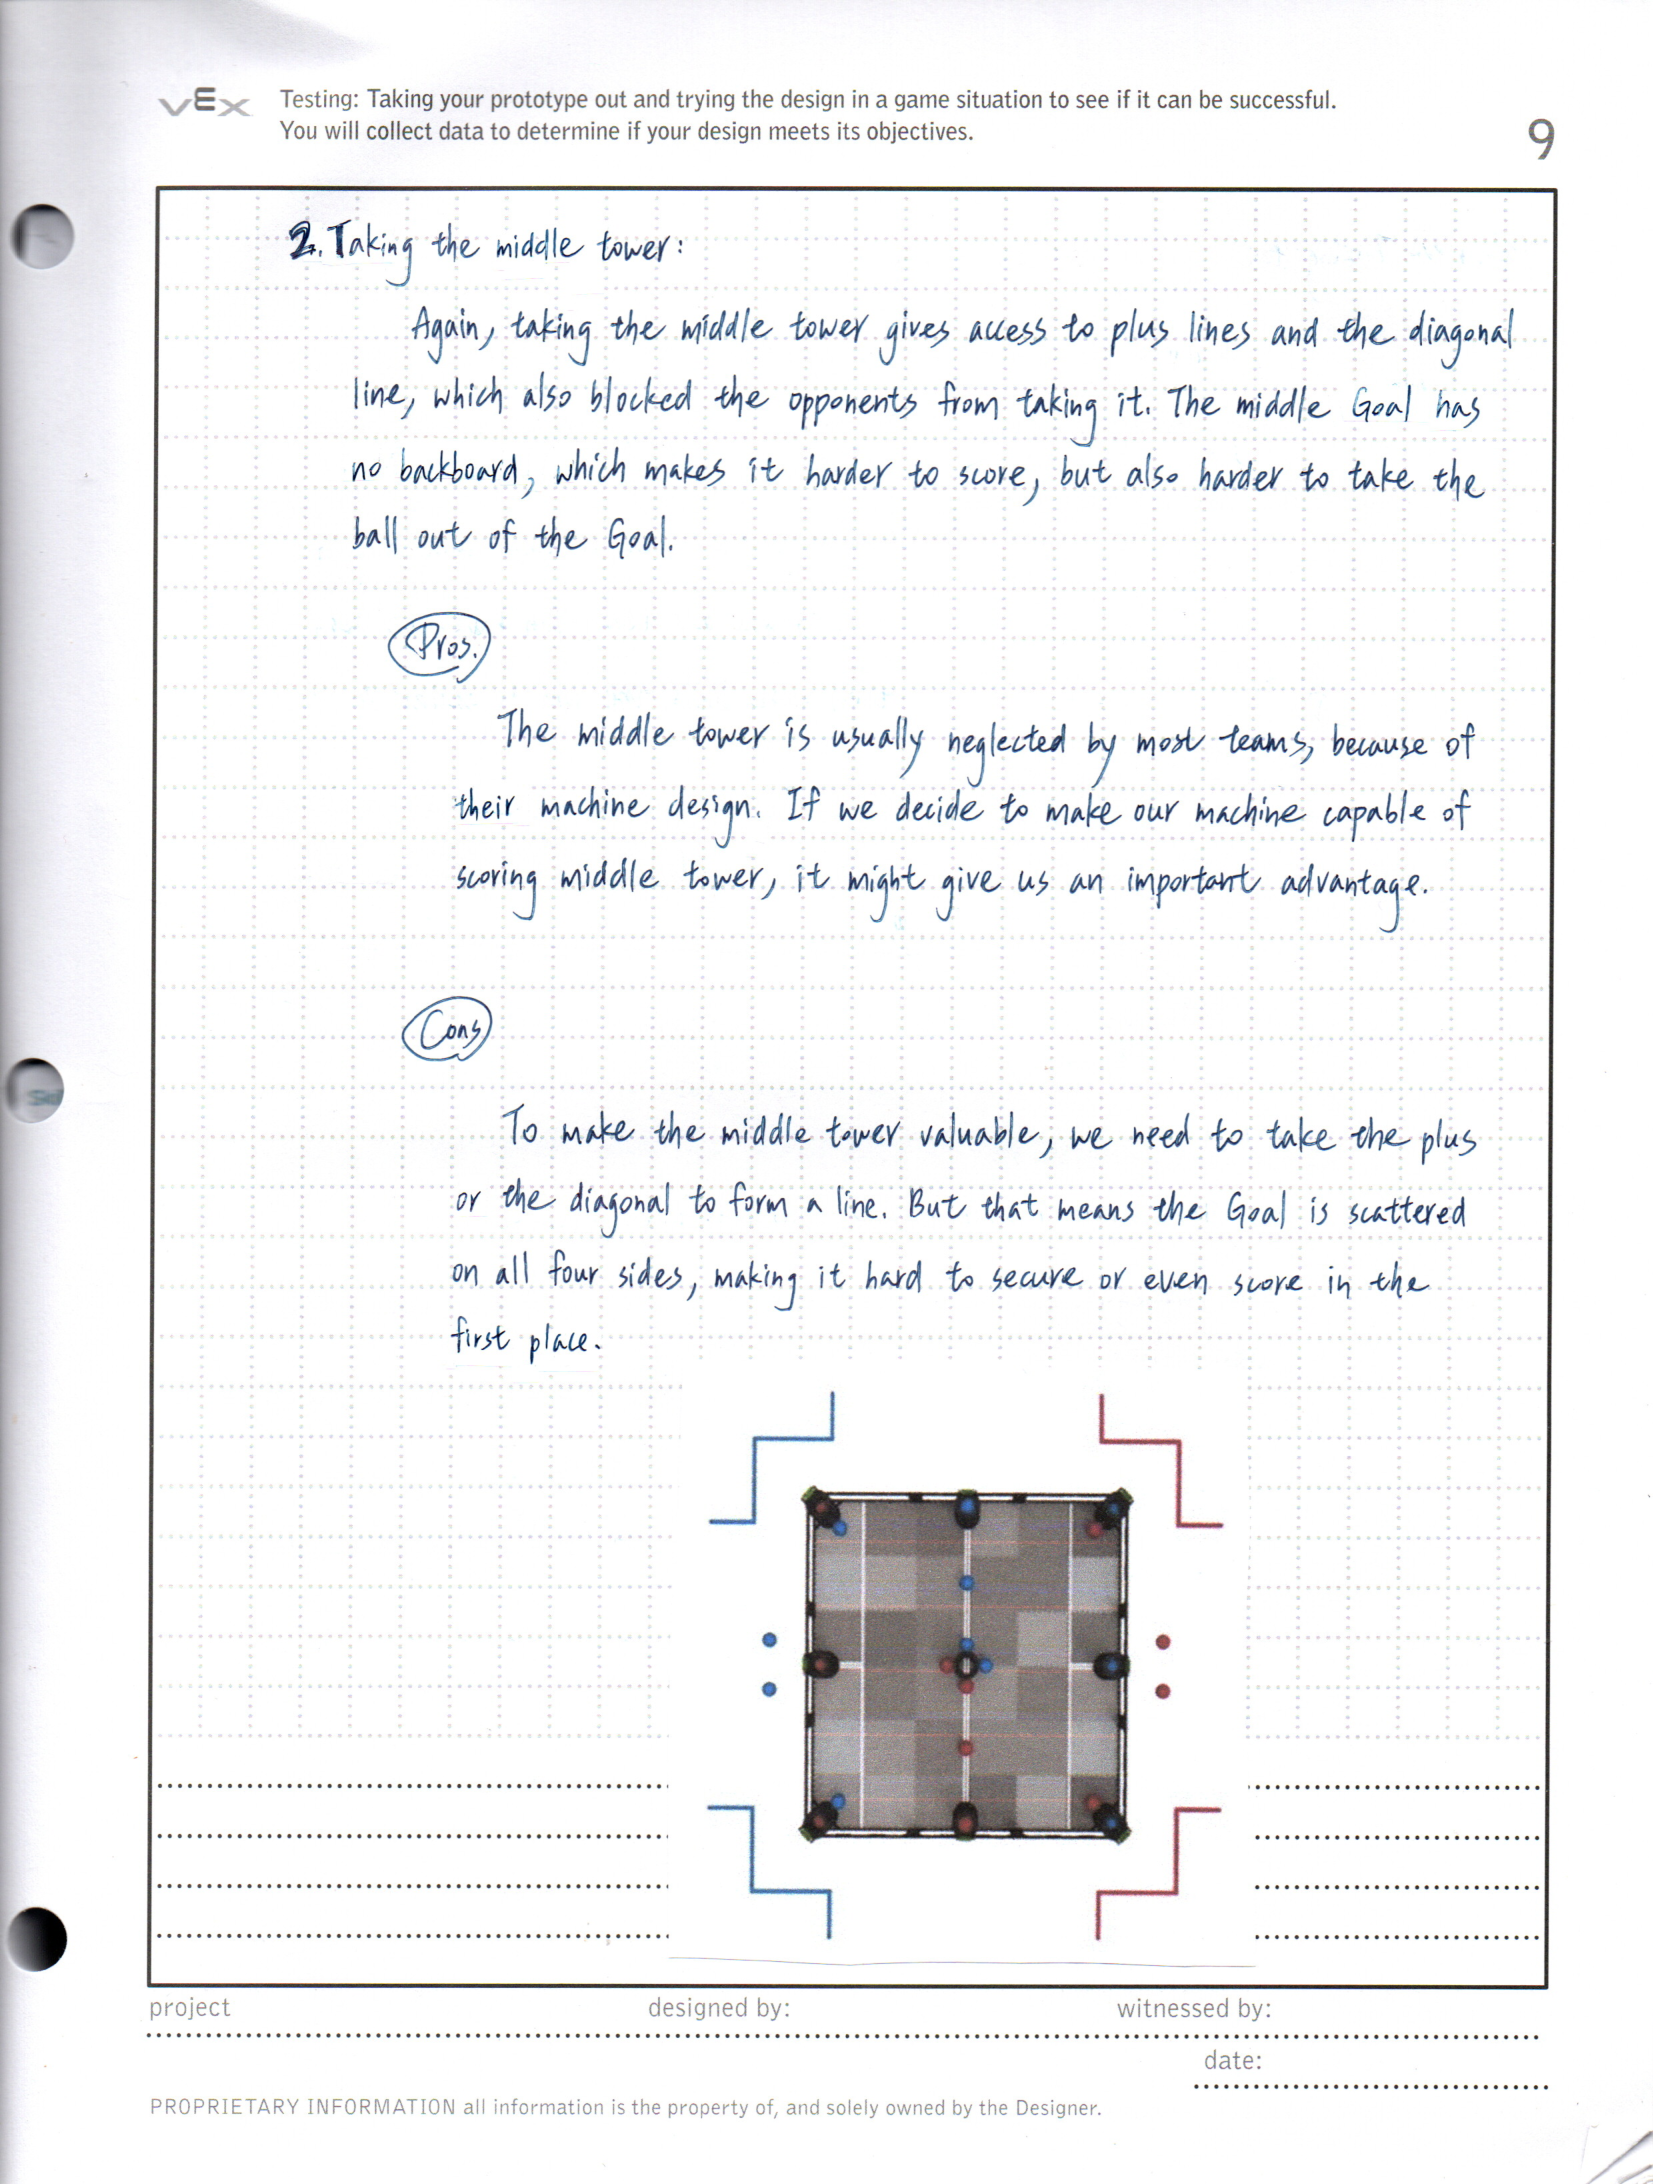 vEx
Testing: Taking your prototype out and trying the design in a game situation to see if it can be successful.
You will collect data to determine if your design meets its objectives.
9
2. Taking the middle tower:
Again, taking the middle tower gives access to plus lines and the diagonal
line, which also blocked the opponents from taking it. The middle Goal has
no backboard, which makes it harder to score, but also harder to take the
ball out of the Goal.
Pros.
The middle tower is usually neglected by most teams, because of
their machine design. If we decide to make our machine capable of
scoring middle tower, it might give us an important advantage.
Cons
To make the middle tower valuable, we need to take the plus
or the diagonal to form a line. But that means the Goal is scattered
on all four sides, making it hard to secure or even score in the
first place.
project
designed by:
witnessed by:
date:
PROPRIETARY INFORMATION all information is the property of, and solely owned by the Designer.